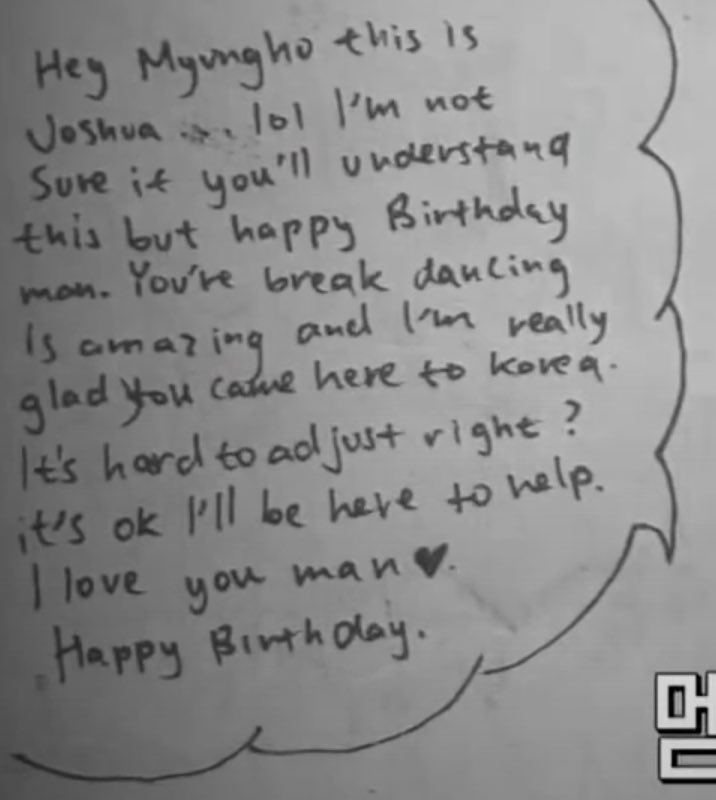 Hey Myungho this is
Joshua ... lol I'm not
sure if you'll understand
this but happy Birthday
man. You're break dancing
is amazing and I'm really
glad you came here to korea.
It's hard to adjust right?
it's ok I'll be here to help.
I love you man♥.
Happy Birthday.